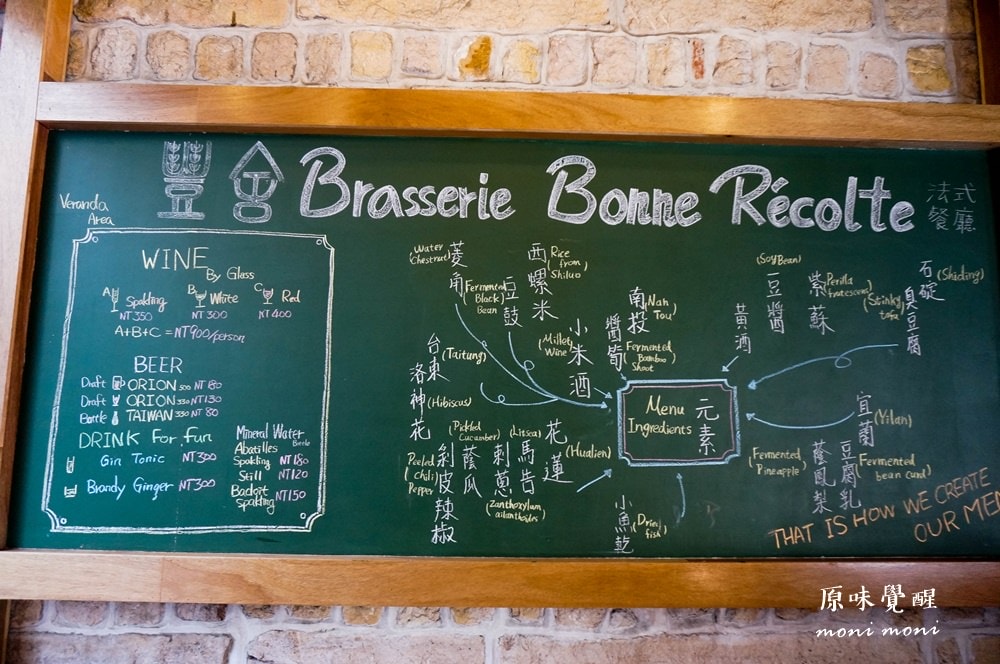 Brasserie Bonne Récolte
法式
餐廳
Veranda
Area
WINE
By Glass
A Spakling NT350
B White NT300
C Red NT400
A+B+C = NT900/person
BEER
Draft ORION 500 NT180
Draft ORION 330 NT130
Bottle TAIWAN 330 NT 80
DRINK For fun
Gin Tonic NT300
Brandy Ginger NT300
Mineral Water
Bottle
Abatilles
Spakling NT180
Still NT120
Badoit NT150
Spakling
Water
Chestnut
菱角
(Fermented
Black
Bean
豆鼓
西螺米
(Rice
from
Shiluo)
(Millet
Wine)
小米酒
南投
(Nan
Tou)
醬筍
(Fermented
Bamboo
Shoot
(SoyBean)
黃酒
豆醬
紫蘇
(Perilla
frutescens)
(Stinky
tofu)
臭豆腐
石碇
(Shiding)
台東
(Taitung)
洛神花
(Hibiscus)
(Pickled
Cucumber)
(Litsea)
花蓮
(Hualien)
(Peeled
Chili
Pepper
剝皮辣椒
蔭瓜
刺蔥
馬告
(Zanthoxylum
ailanthoides)
Menu
Ingredients
元素
小魚乾
(Dried
fish)
宜蘭
(Yilan)
(Fermented
Pineapple)
蔭鳳梨
豆腐乳
(Fermented
bean curd)
THAT IS HOW WE CREATE
OUR ME
原味覺醒
moni moni